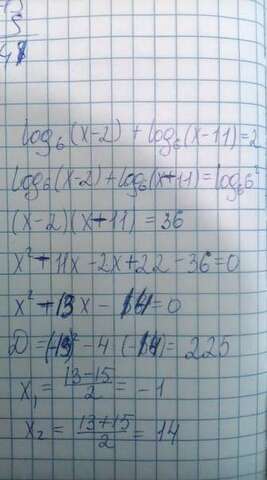 log₆(x-2) + log₆(x-11)=2
log₆(x-2)+log₆(x-11)=log₆6²
(x-2)(x-11)=36
x²-11x-2x+22-36=0
x²-13x-14=0
D=(-13)²-4·(-14)=225
x₁=(13-15)/2=-1
x₂=(13+15)/2=14